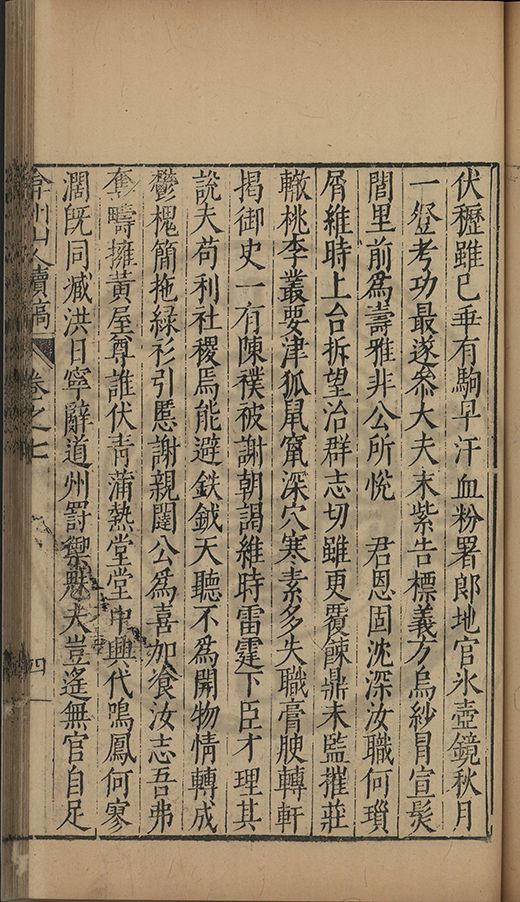 伏櫪雖已垂有駒早汗血粉署郎地官氷壺鏡秋月
一登考功最遂叅大夫末紫告標義方烏紗冒宣髮
閭里前為壽雅非公所悅　君恩固沈深汝職何瑣
屑維時上台拆望治群志切雖更覆餗鼎未監摧莊
轍桃李叢要津狐鼠窟深穴寒素多失職膏腴轉軒
揭御史一有陳襆被謝朝謁維時雷霆下臣才理其
說夫苟利社稷焉能避鈇鉞天聽不為開物情轉成
鬱槐簡拖綠衫引慝謝親闥公為喜加飡汝志吾弗
奪疇擁黃屋尊誰伏青蒲熱堂堂中興代鳴鳳何寥
濶旣同臧洪日寧辭道州罰禦魅夫豈遙無官自足
弇州山人續稿　卷之七　四